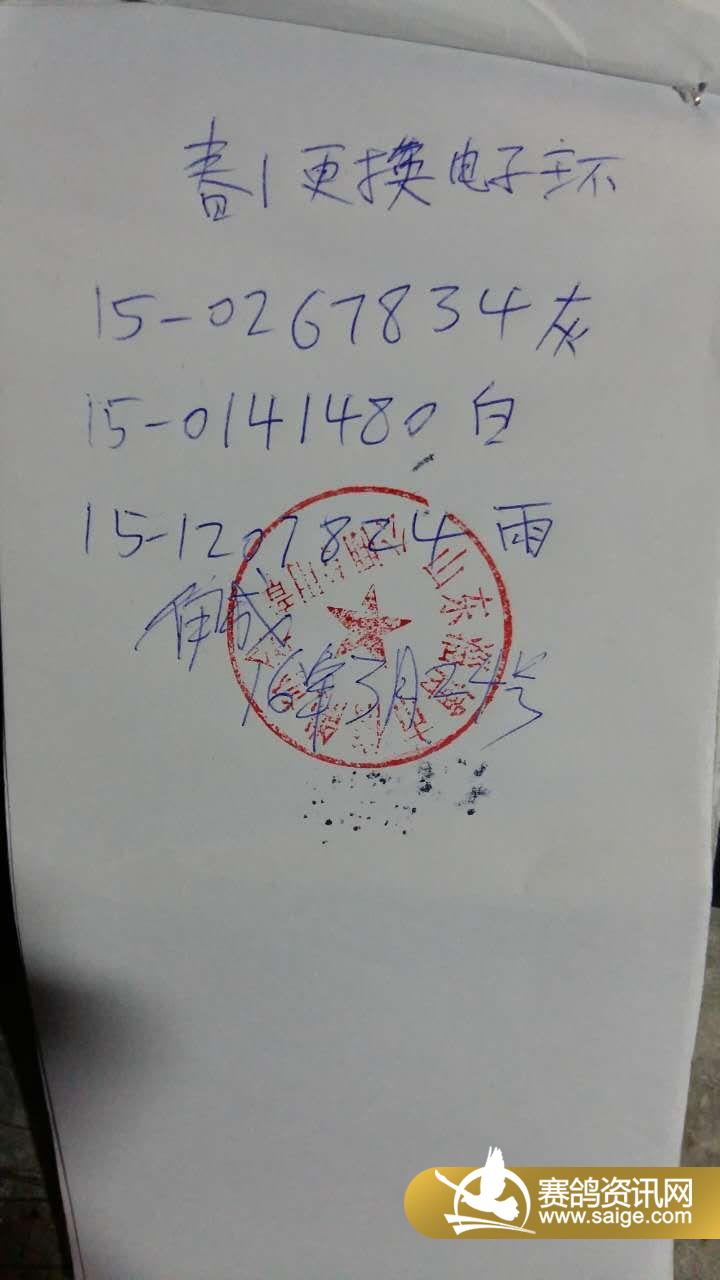 春1更换电子环
15-0267834灰
15-0141480白
15-1207824雨
16年3月24号
山东
赛鸽资讯网
www.saige.com